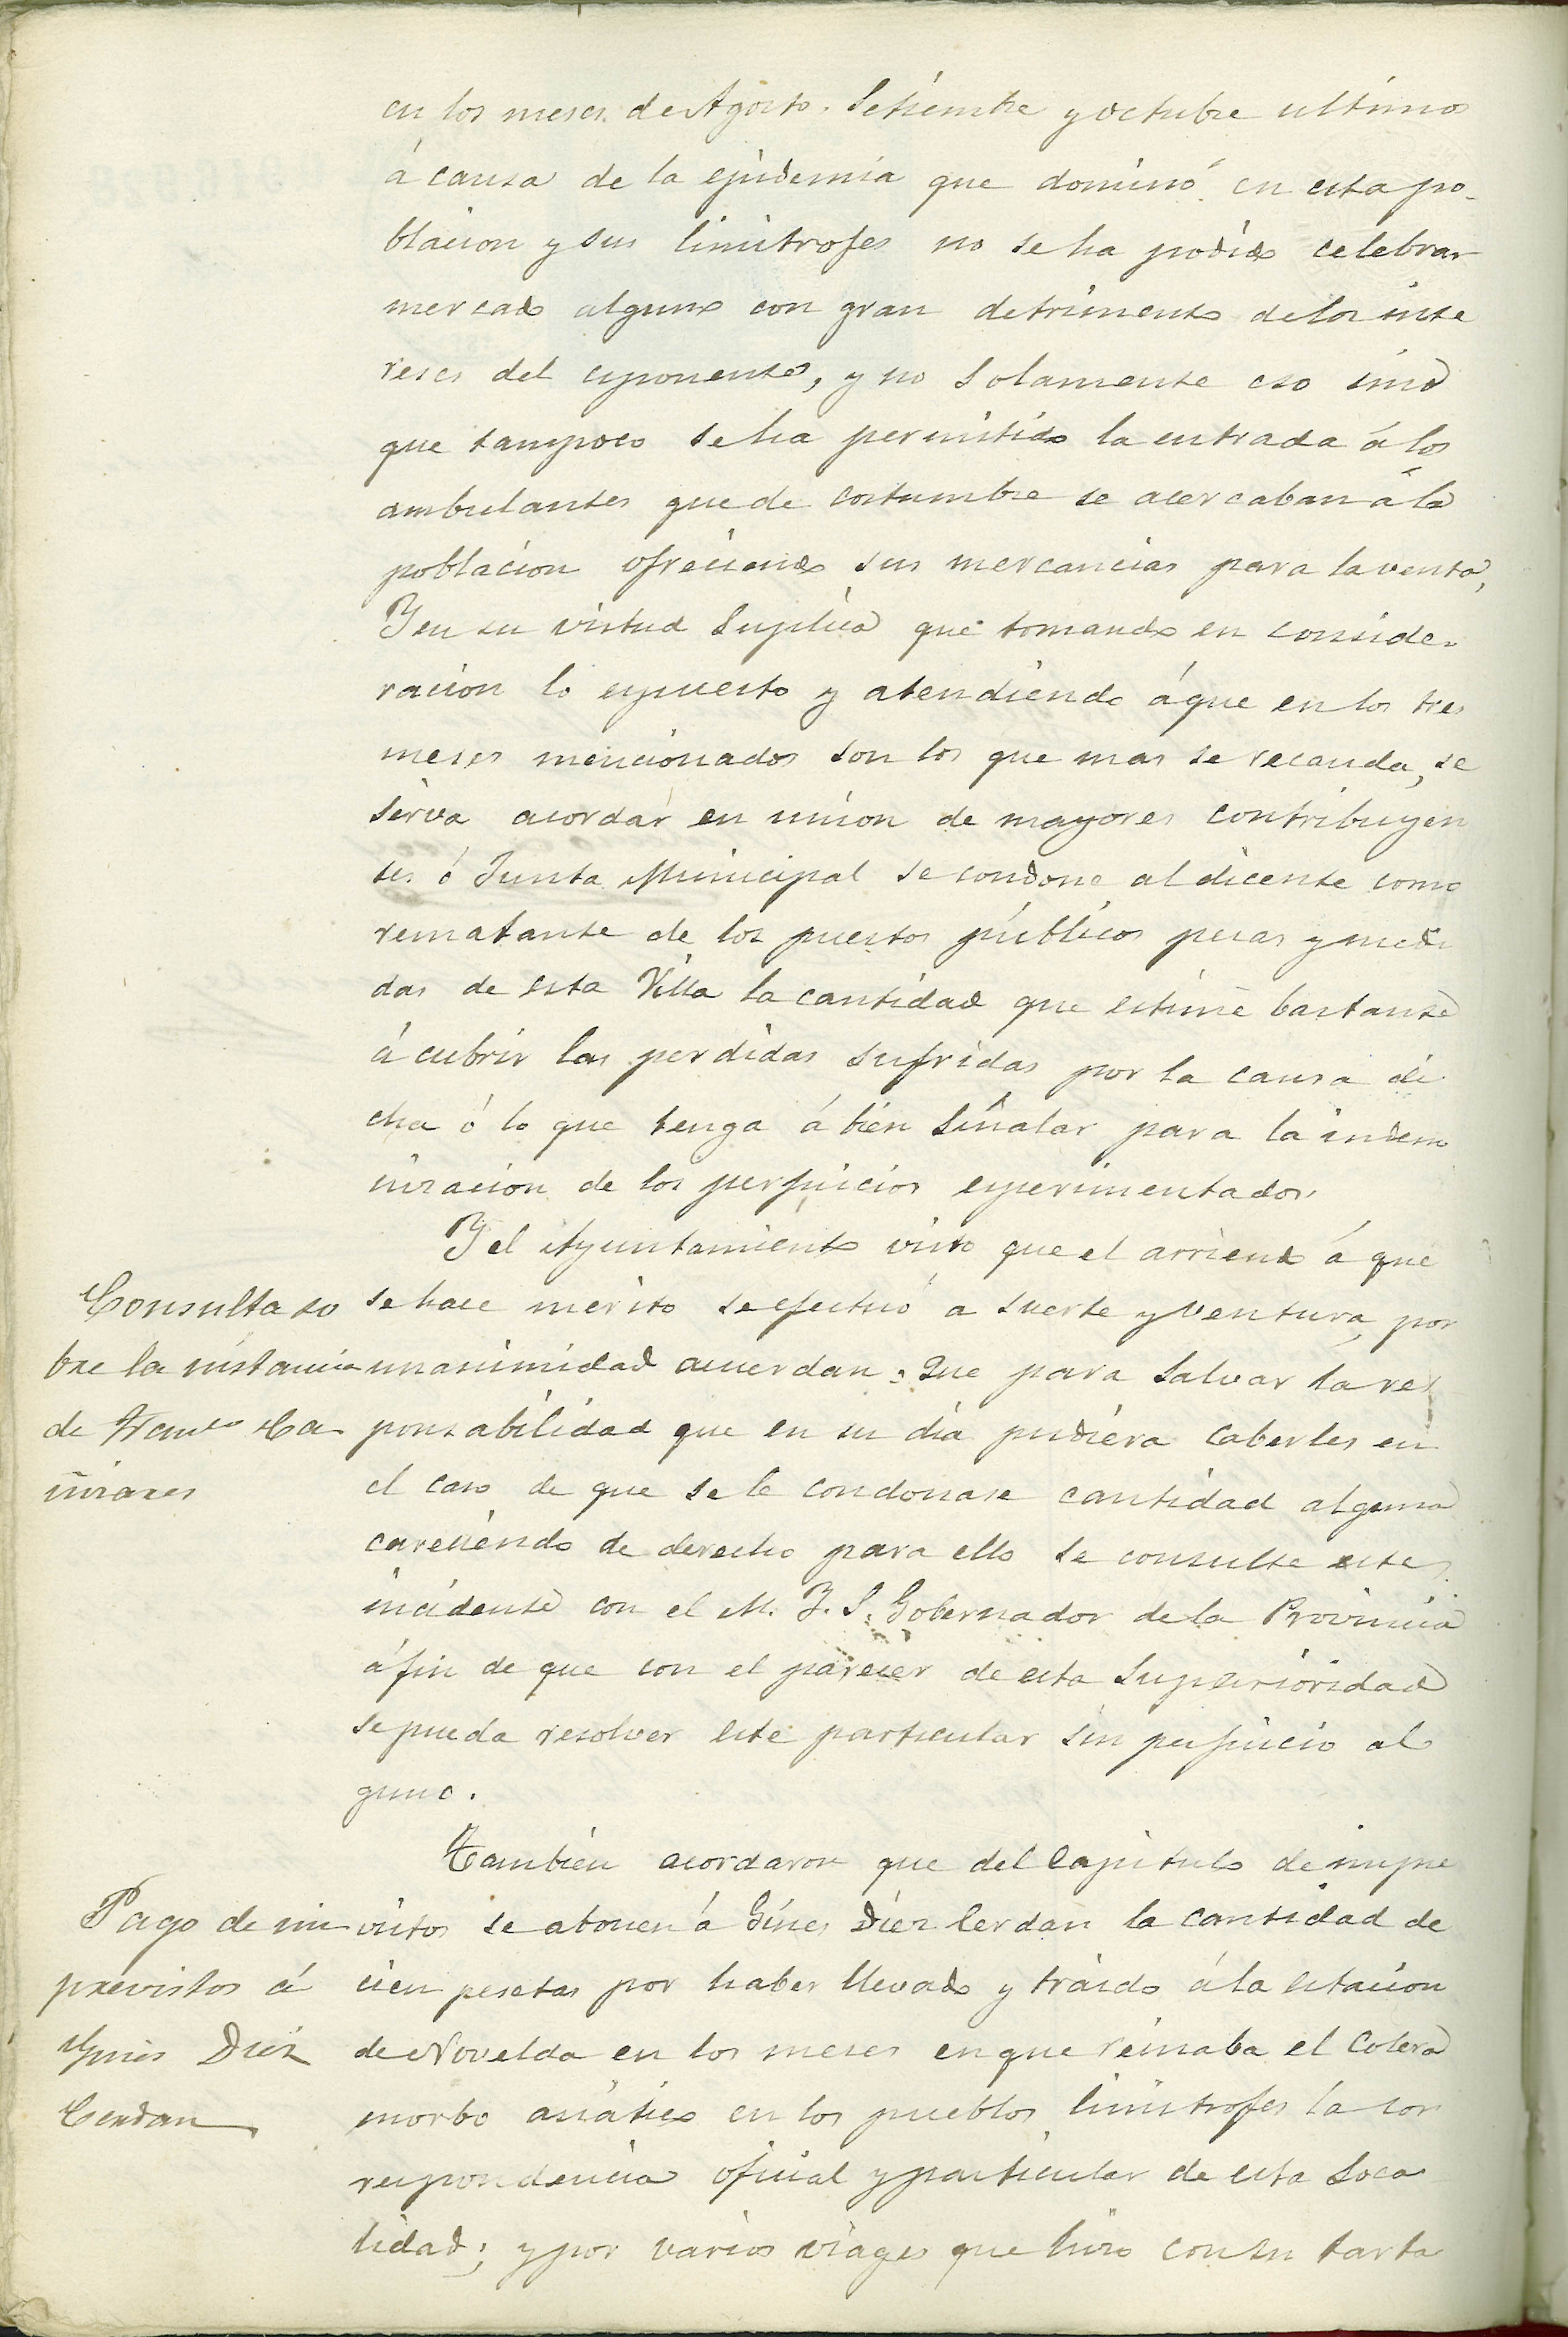 en los meses de Agosto. Setiembre y octubre ultimos
á causa de la epidemia que dominó en esta po-
blacion y sus limitrofes no se ha podido celebrar
mercado alguno con gran detrimento de los inte
reses del esponente, y no solamente eso sino
que tampoco se ha permitido la entrada á los
ambulantes que de costumbre se acercaban á la
poblacion ofreciendo sus mercancias para la venta,
Y en su virtud Suplica que tomando en conside-
racion lo espuesto y atendiendo á que en los tres
meses mencionados son los que mas se recauda, se
sirva acordar en union de mayores contribuyen
tes ó Junta Municipal se condone al dicente como
rematante de los puestos públicos pesas y medi
das de esta Villa la cantidad que estime bastante
á cubrir las perdidas sufridas por la causa di
cha ó lo que tenga á bien Señalar para la indem
nizacion de los perjuicios esperimentados.
Y el Ayuntamiento visto que el arriendo á que
Consulta so
bre la instancia
de Franco Ca
ñizares
se hace merito se efectuó a suerte y ventura, por
unanimidad acuerdan: Que para Salvar la res
ponsabilidad que en su dia pudiera caberles en
el caso de que se le condonase cantidad alguna
careciendo de derecho para ello se consulte este
incidente con el M. Y. S. Gobernador de la Provincia
á fin de que con el parecer de esta Superioridad
se pueda resolver este particular sin perjuicio al
guno.
Tambien acordaron que del Capitulo de impre
Pago de im
previstos á
Gines Diez
Cerdan
vistos se abonen á Gines Diez Cerdan la cantidad de
cien pesetas por haber llevado y traido á la estacion
de Novelda en los meses en que reinaba el Colera
morbo asiatico en los pueblos limitrofes la cor
respondencia oficial y particular de esta Loca
lidad; y por varios viages que hizo con su tarta